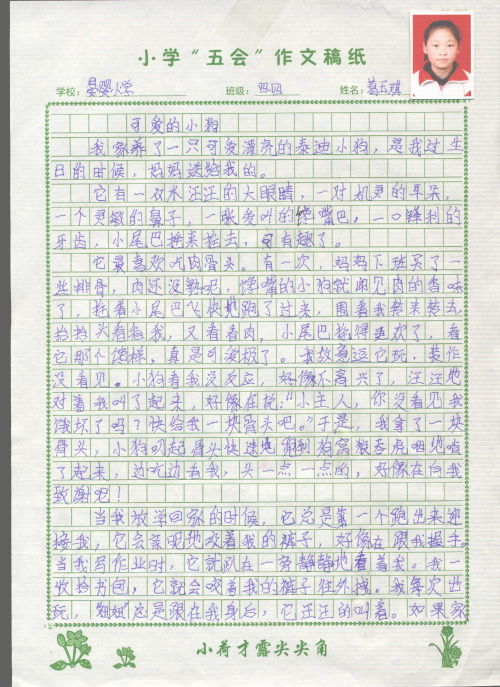 小学“五会”作文稿纸
学校：晏婴小学 班级：四四 姓名：
可爱的小狗
我家养了一只可爱漂亮的泰迪小狗，是我过生
日的时候，妈妈送给我的。
它有一双水汪汪的大眼睛，一对机灵的耳朵，
一个灵敏的鼻子，一张爱叫的馋嘴巴，一口锋利的
牙齿，小尾巴摇来摇去，可有趣了。
它最喜欢吃肉骨头。有一次，妈妈下班买了一
些排骨，肉还没熟呢，馋嘴的小狗就闻见肉的香味
了，摇着小尾巴飞快地跑了过来，围着我转来转去，
抬抬头看看我，又看看肉，小尾巴摇得更欢了，看
它那个馋样，真是可爱极了。我故意逗它玩，装作
没看见。小狗看我没反应，好像不高兴了，汪汪地
对着我叫了起来，好像在说：“小主人，你没看见我
饿坏了吗？快给我一块骨头吧。”于是，我拿了一块
骨头，小狗叼起骨头快速地跑到狗窝狼吞虎咽地啃
了起来，边吃边看我，头一点一点的，好像在向我
致谢呢！
当我放学回家的时候，它总是第一个跑出来迎
接我，它会亲昵地咬着我的裤子，好像在跟我握手。
当我写作业时，它就趴在一旁静静地看着我。我一
收拾书包，它就会咬着我的裤子往外拽。我每次出
玩，总是跟在我身后，它汪汪的叫着。如果家
小荷才露尖尖角